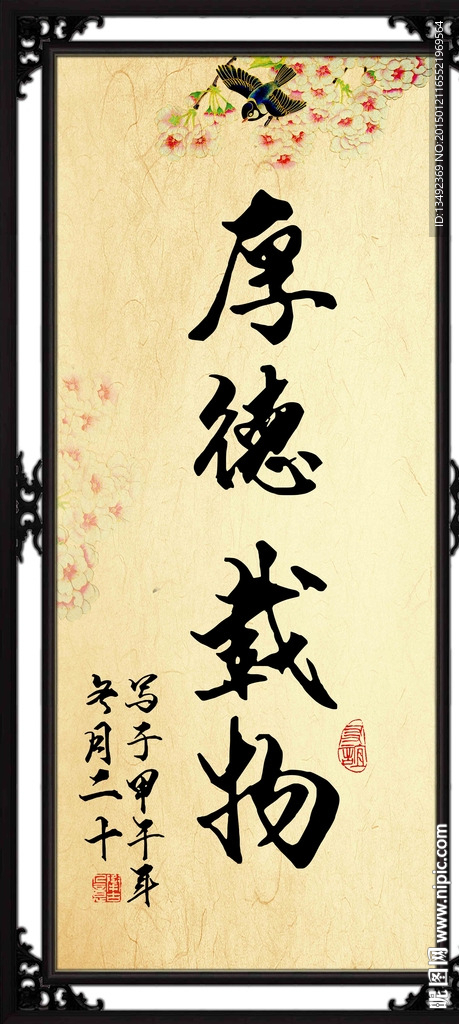 厚德载物
写于甲午年
冬月二十
ID:13492369 NO:20150121165521969564
昵图网 www.nipic.com